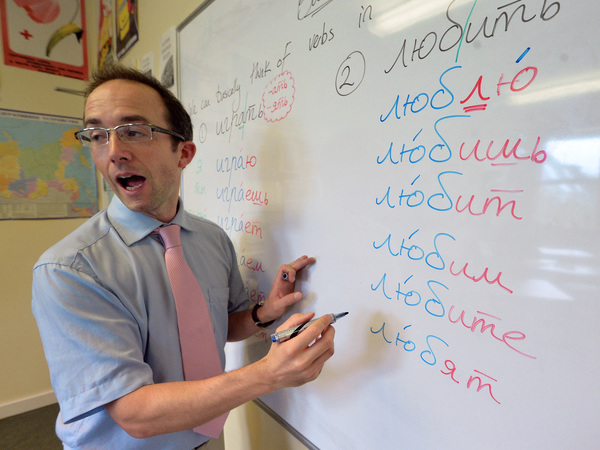 We can basically think of verbs in
① играть
-ать
-ять
я игра́ю
игра́ешь
игра́ет
а́ем
② любить
люблю́
лю́бишь
лю́бит
лю́бим
лю́бите
лю́бят